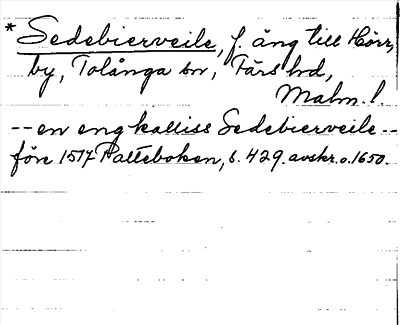 * Sedebierveile, f. äng till Hörr,
by, Tolånga sn, Färs hd,
Malm. l.
-- en eng kalliss Sedebierveile --
före 1517 Palteboken, s. 429. avskr. o. 1650.